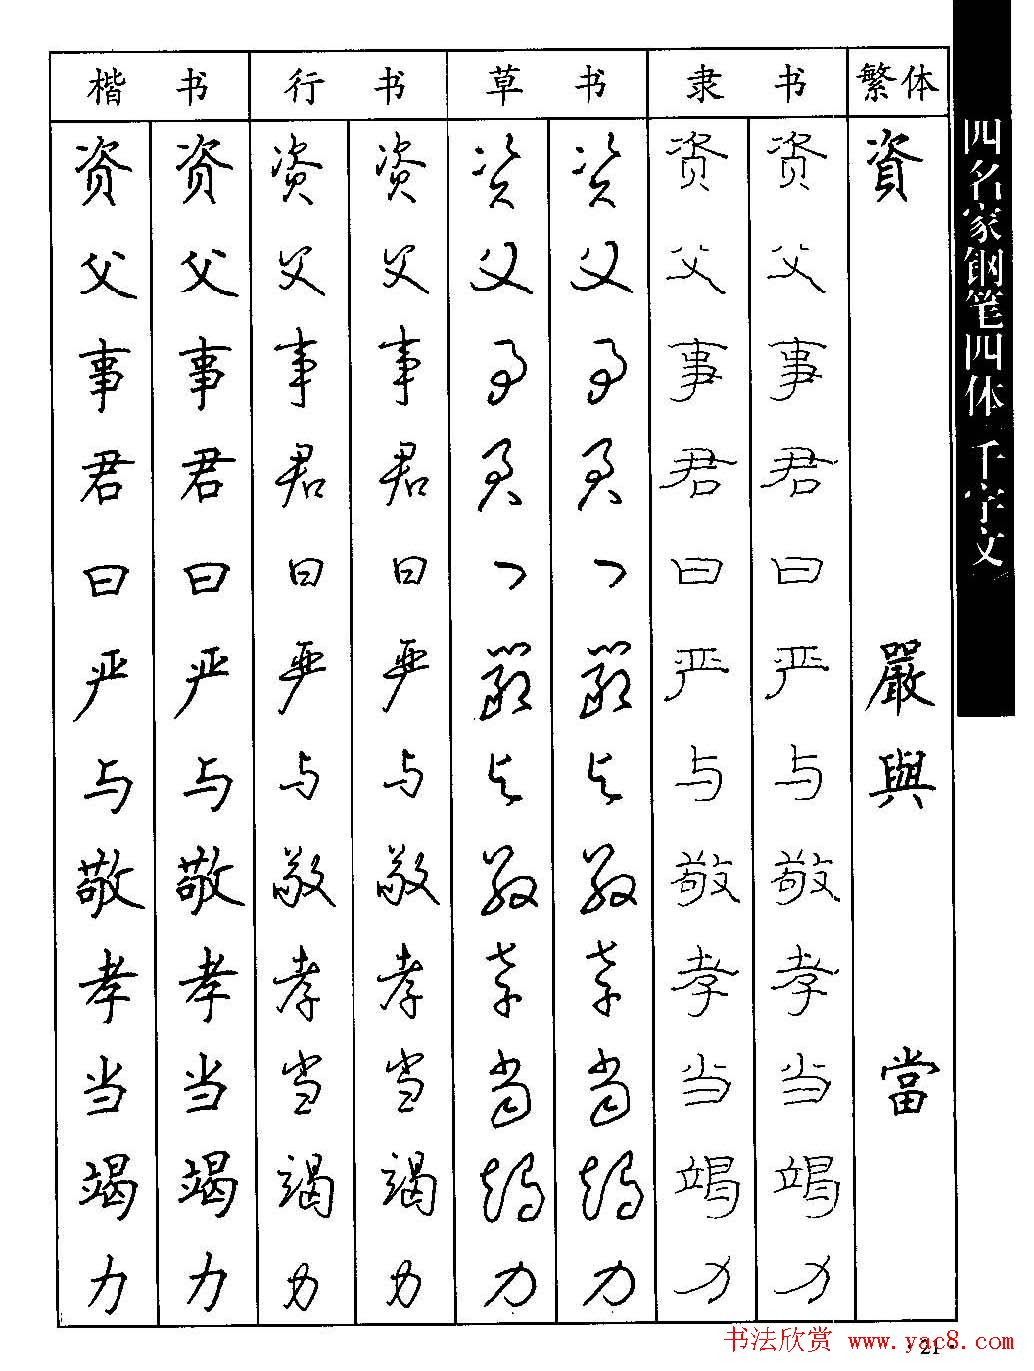 楷书 行书 草书 隶书 繁体
资 资 资 资 资 资 资 资 資
父 父 父 父 父 父 父 父
事 事 事 事 事 事 事 事
君 君 君 君 君 君 君 君
曰 曰 曰 曰 曰 曰 曰 曰
严 严 严 严 嚴 嚴 严 严 嚴
与 与 与 与 与 与 与 与 與
敬 敬 敬 敬 敬 敬 敬 敬
孝 孝 孝 孝 孝 孝 孝 孝
当 当 当 当 当 当 当 当 當
竭 竭 竭 竭 竭 竭 竭 竭
力 力 力 力 力 力 力 力
四名家钢笔四体千字文
21
书法欣赏 www.yac8.com